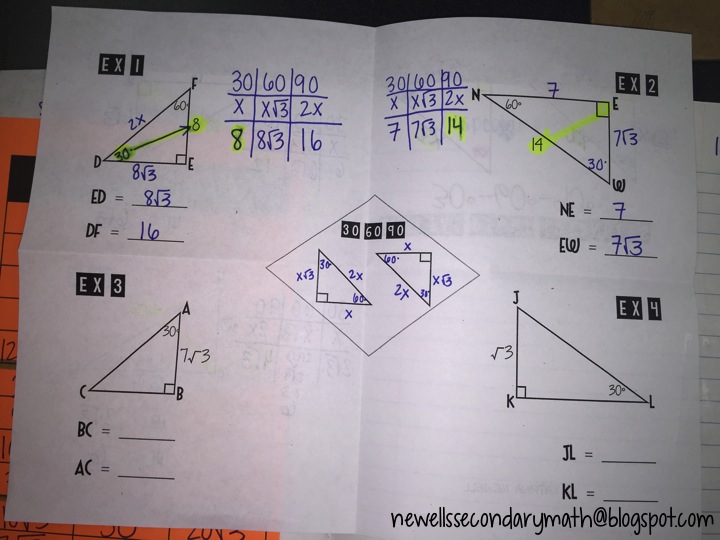 EX 1
F
60°
2x
8
30°
D
E
8√3
ED = 8√3
DF = 16
30 60 90
x x√3 2x
8 8√3 16
30 60 90
x x√3 2x
7 7√3 14
EX 2
7
N
E
60°
14
7√3
30°
W
NE = 7
EW = 7√3
30 60 90
30°
x√3
2x
60°
x
x
60°
x√3
2x
30°
EX 3
A
30°
7√3
C
B
BC = ____
AC = ____
EX 4
J
√3
30°
K
L
JL = ____
KL = ____
newellssecondarymath@blogspot.com